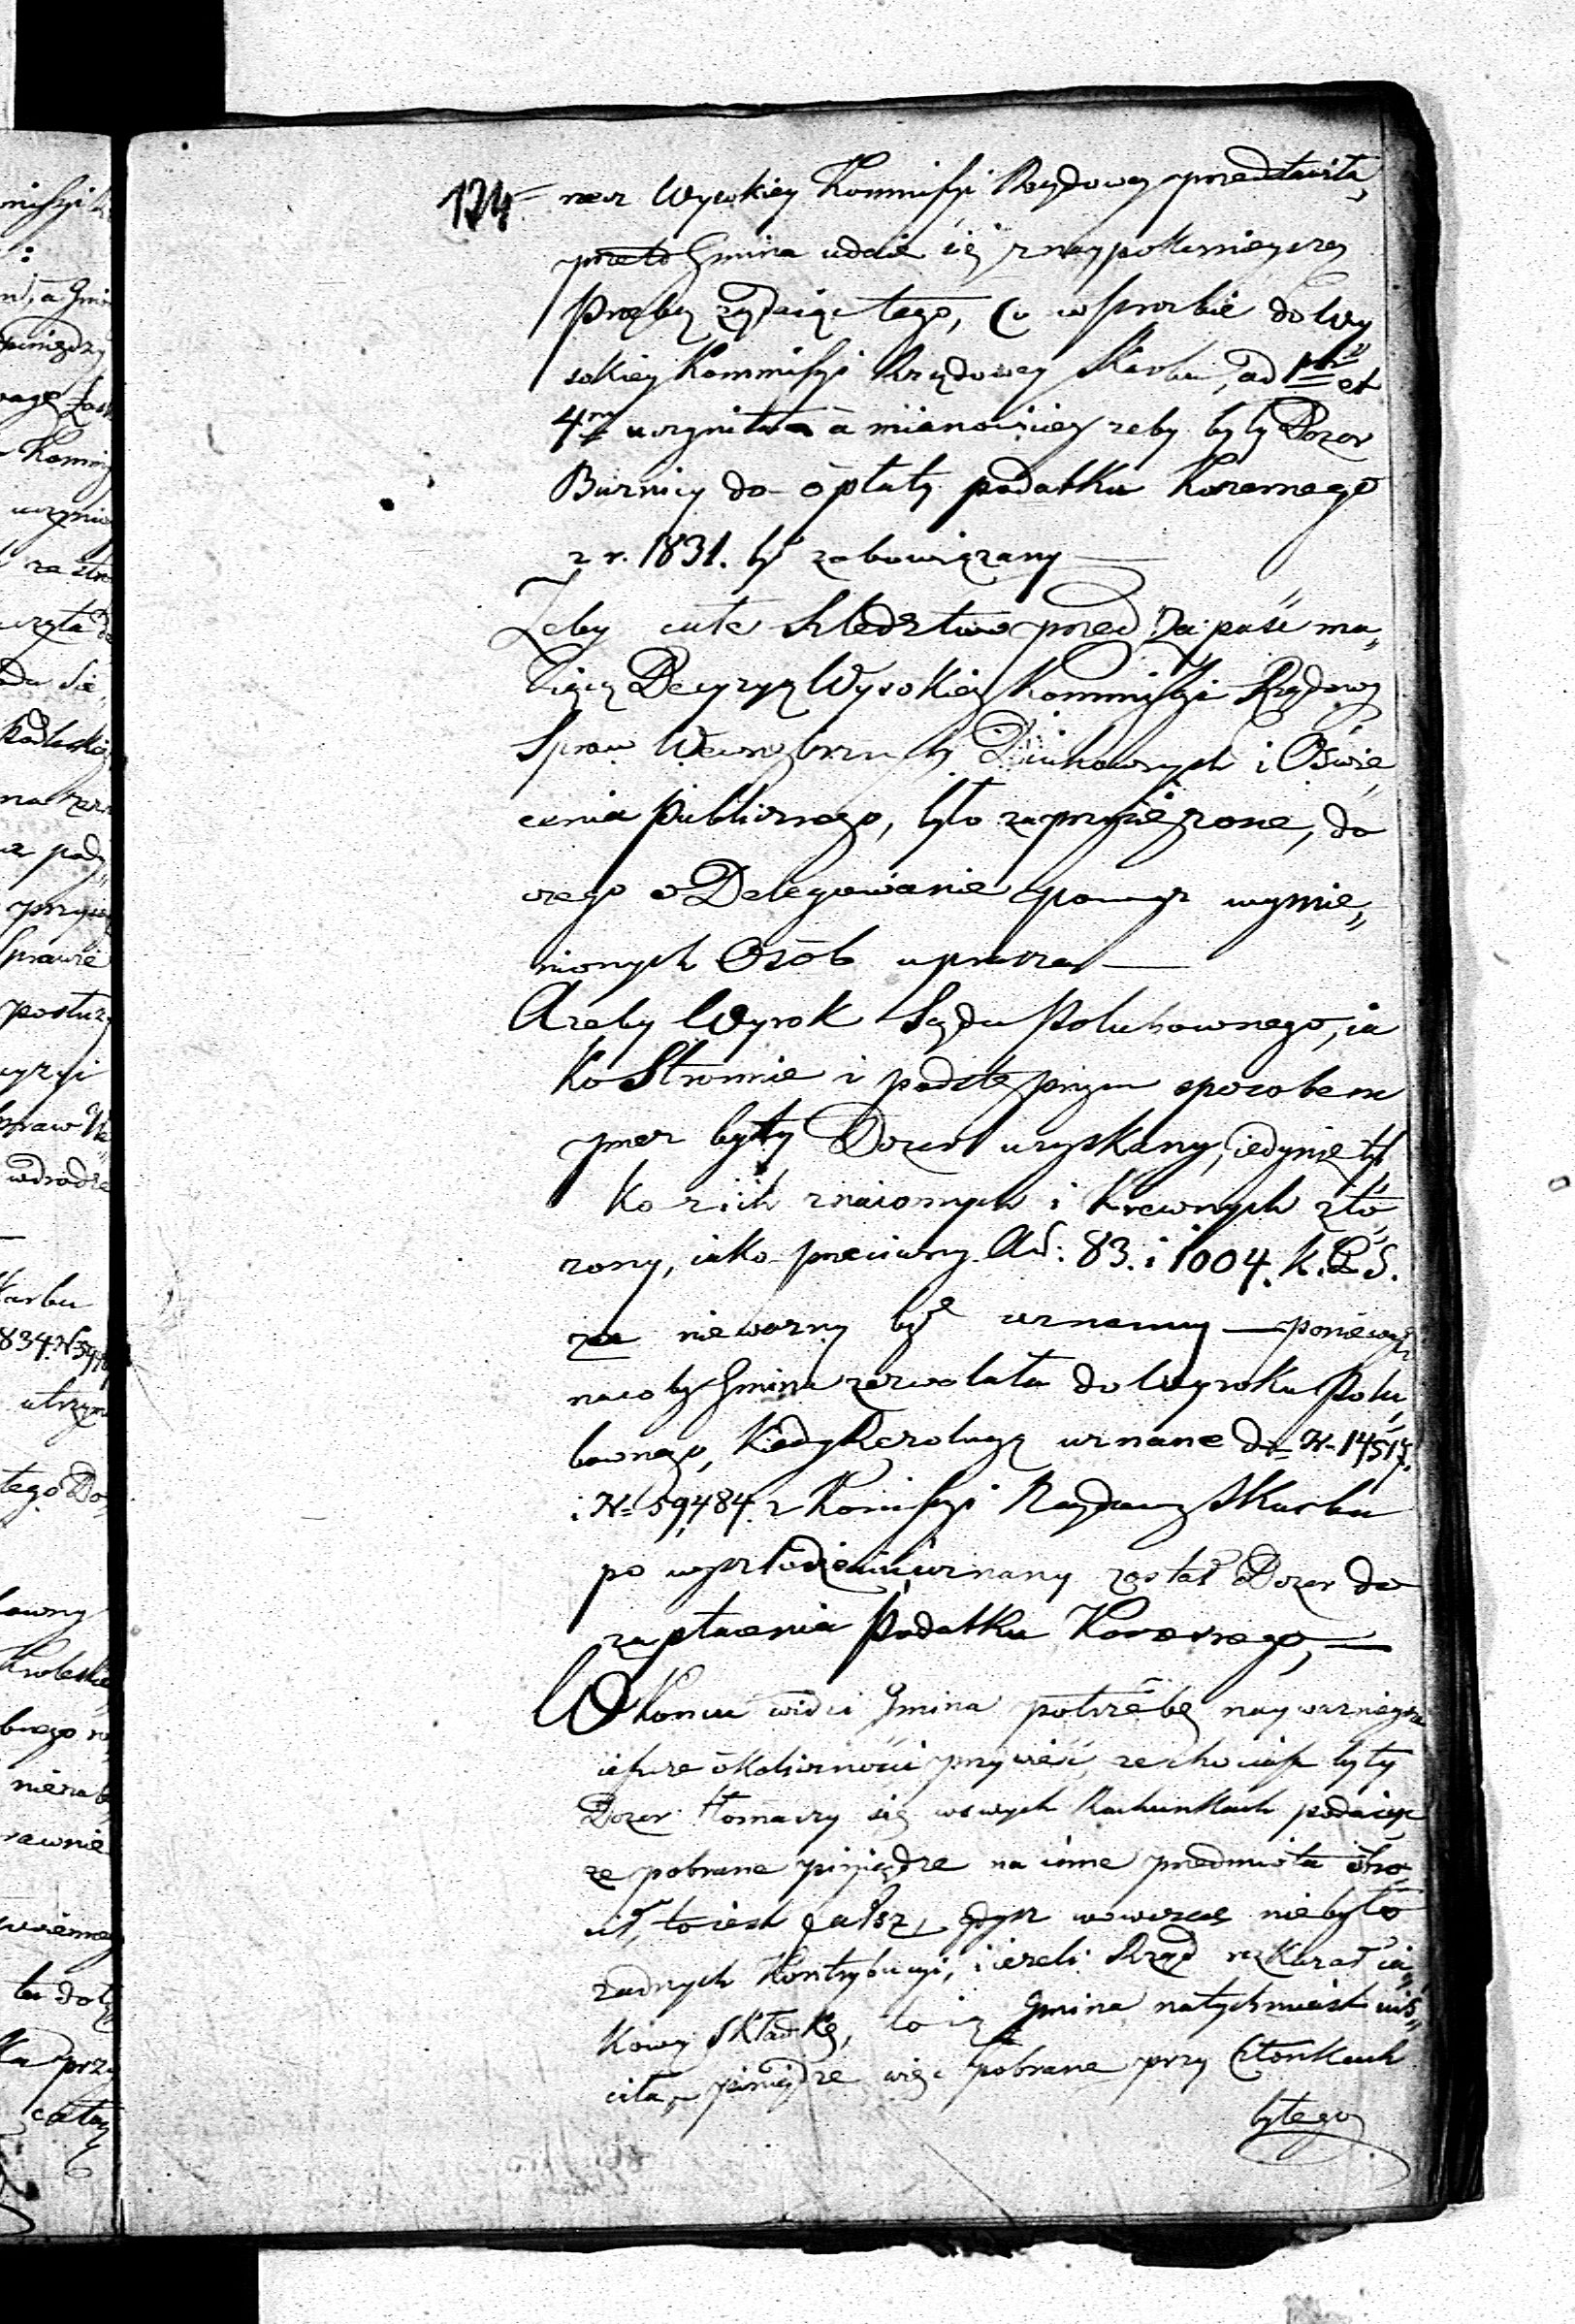 124
nież Wysokiey Kommissyi Rządowey przedstawiła,
przeto Gmina udaie się z naypokornieyszą
Prozbą żądaiąc tego, Co w prozbie do Wy
sokiey Kommissyi Rządowey Skarbu, ad 1m et
4m uczyniła a mianowiciey żeby były Dozor
Bużnicy do opłaty podatku Koszernego
z r. 1831. był zobowiązany —
Żeby całe Szledztwo przed Zapaść ma„
iącą Decyzyą Wysokiey Kommissyi Rządowey
Spraw Wewnętrznych Duchownych i Oświe„
cenia Publicznego, było zaprzysiężone, do
czego o Delegowanie powyż wymie„
nionych Osób uprasza —
Ażeby Wyrok Sądu Polubownego, ia
ko Stronnie i podstępnym sposobem
przez były Dozor uzyskany, iedynie tyl„
ko z ich znaiomych i Krewnych zło„
żony, iako przeciwny Art: 83. i 1004. K. P. S.
za nieważny był uznany — ponieważ
na co by Gmina zezwalała do Wyroku Polu„
bownego, Kiedy Rezolucyą uznane do N. 14517.
i N. 59484. z Komissyi Rządowey Skarbu
po wyszledzeniu uznany został Dozor do
zapłacenia Podatku Koszernego, —
W Koncu widzi Gmina potrzebę nayważnieyszą
ieszcze okoliczność przywieść, że chociasz były
Dozor tłomaczy się w swych Rachunkach podaiąc
że pobrane pieniądze na inne przedmiota obró„
cił, to iest fałsz, gdysz wowczas niebyło
żadnych Kontrybucyi, i ieżeli Rząd rozkazał ia„
kową Składkę, to ią Gmina natychmiast uiś„
ciła, — pieniądze więc pobrane przy Członkach
byłego